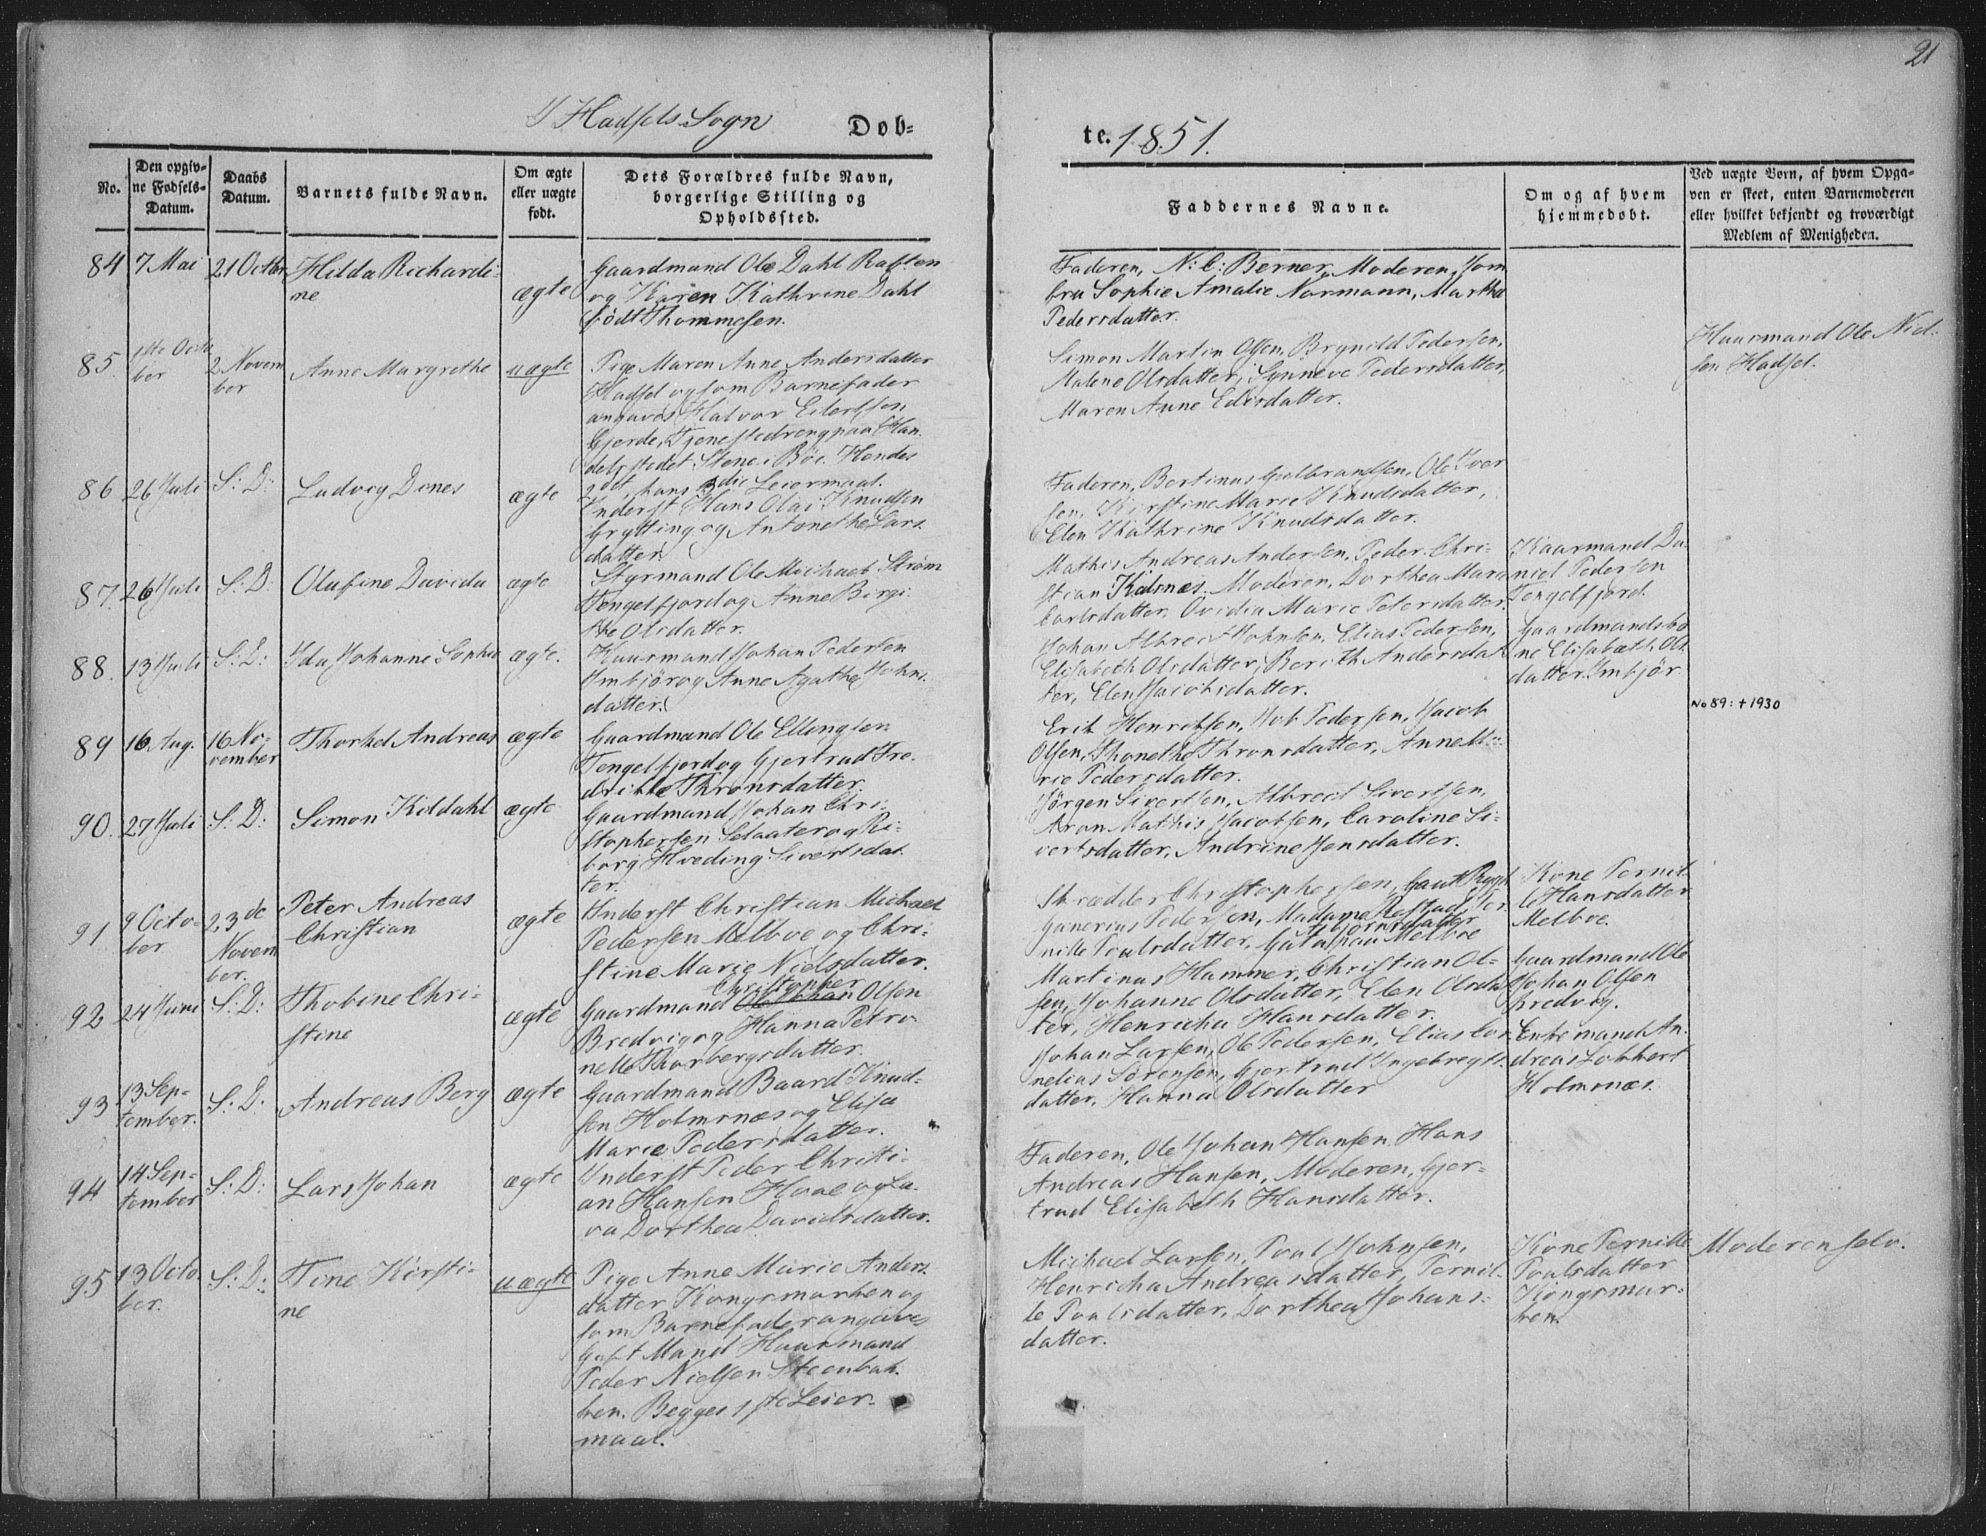 21
I Hadsels Sogn Dob-
te. 1851.
No.
Den opgiv-
ne Fødsels-
Datum.
Daabs
Datum.
Barnets fulde Navn.
Om ægte
eller uægte
født.
Dets Forældres fulde Navn,
borgerlige Stilling og
Opholdssted.
Faddernes Navne.
Om og af hvem
hjemmedøbt.
Ved uægte Born, af hvem Opga-
ven er skeet, enten Barnemoderen
eller hvilket bekjendt og troværdigt
Medlem af Menigheden.
84
7 Mai
21 Octbr
Hilda Richardi-
ne
ægte
Gaardmand Ole Dahl Raften
og Karen Kathrine Dahl
født Thommesen.
Faderen, N: C: Berner, Moderen, Jom
fru Sophie Amalie Normann, Martha
Pedersdatter.
85.
1ste Octo
ber
2 Novem
ber
Anne Margrethe
uægte
Pige Maren Anne Andersdatter
Hadsel og som Barnefader
angaves Halvor Eilertsen
Gjerde, Tjenestedreng paa Han
delsstedet Stene i Bøe. Hendes
2det, hans 3die Leiermaal.
Simon Martin Olsen, Brynild Pedersen,
Malene Olsdatter, Synneve Pedersdatter,
Maren Anne Edisdatter.
Huusmand Ole Niel-
sen Hadsel.
86
26 Juli
S: D:
Ludvig Dines
ægte
Inderst Hans Olai Knudsen
Grytting og Antonethe Lars
datter
Faderen, Bertinus Guldbrandsen, Ole Iver
sen, Kirstine Marie Knudsdatter,
Elen Kathrine Knudsdatter.
87.
26 Juli
S: D:
Olufine Davida
ægte
Styrmand Ole Michael Strøm
Tengelfjord og Anne Birgi
the Olsdatter.
Mathis Andreas Andersen, Peder Chri-
stian Kidsnæs, Moderen, Dorthea Marie
Carlsdatter, Ovidia Marie Petersdatter.
Huusmand Da
niel Pedersen
Tengelfjord.
88.
13 Juli
S: D:
Ida Johanne Sophie
ægte.
Huusmand Johan Pedersen
Imbjør og Anne Agathe Johns
datter.
Johan Albrect Johnsen, Elias Pedersen,
Elisabeth Olsdatter, Bereth Andersdat
ter, Elen Jacobsdatter.
Gaardmandsko
ne Elisabeth Ols
datter Imbjør
89
16 Aug.
16 No-
vember
Thorkel Andreas
ægte
Gaardmand Ole Ellingsen
Tengelfjord og Gjertrud Fre
drikke Thronsdatter
Erik Henriksen, Job Pedersen, Jacob
Olsen, Thonethe Thronsdatter, Anne Ma-
rie Pedersdatter.
No 89: † 1930
90.
27 Juli
S: D:
Simon Kildahl
ægte
Gaardmand Johan Chri-
stophersen Selaater og Ri-
borg Hveding Sivertsdat
ter.
Jørgen Sivertsen, Albrect Sivertsen,
Aron Mathis Jacobsen, Caroline Si-
vertsdatter, Andrine Jensdatter.
91
9 Octo-
ber
23de
Novem
ber.
Peter Andreas
Christian
ægte
Inderst Christian Michael
Pedersen Melboe og Chri-
stine Marie Nielsdatter.
Skrædder Christophersen,
Ganerius Pedersen, Madame Refstad, Per
nille Poulsdatter,
Kone Pernil
le Hansdatter
Melboe.
92
24 Juni
S: D:
Thobine Chri-
stine
ægte
Christopher
Gaardmand Ole Johan Olsen
Bredvig og Hanna Petro
nelle Thorbergsdatter.
Martinus Hammer, Christian Ol-
sen, Johanne Olsdatter, Elen Olsdat
ter, Henricha Hansdatter.
Gaardmand Ole
Johan Olsen
Bredvig.
93
13 Sep-
tember.
S: D:
Andreas Berg
ægte
Gaardmand Baard Knud-
sen Holmsnæs og Elisa
Marie Pedersdatter.
Johan Larsen, Ole Pedersen, Elias Cor
nelius Sørensen, Gjertrud Ingebregts-
datter, Hanna Olsdatter
Enkemand An-
dreas Lobbert
Holmsnæs.
94
14 Sep-
tember
S: D:
Lars Johan
ægte
Inderst Peder Christi-
an Hansen Hval og La-
va Dorthea Davidsdatter.
Faderen, Ole Johan Hansen, Hans
Andreas Hansen, Moderen, Gjer-
trud Elisabeth Hansdatter.
95
13 Octo
ber.
S: D:
Tine Kirsti-
ne
uægte
Pige Anne Marie Anders
datter Kongsmarken og
som Barnefader angives
Gift Mand Huusmand
Peder Nielsen Steenbak
ken. Begges 1ste Leier-
maal.
Michael Larsen, Poul Johnsen,
Henricha Andreasdatter, Pernil-
le Poulsdatter, Dorthea Johans-
datter.
Kone Pernille
Poulsdatter
Kongsmar-
ken.
Moderen selv.